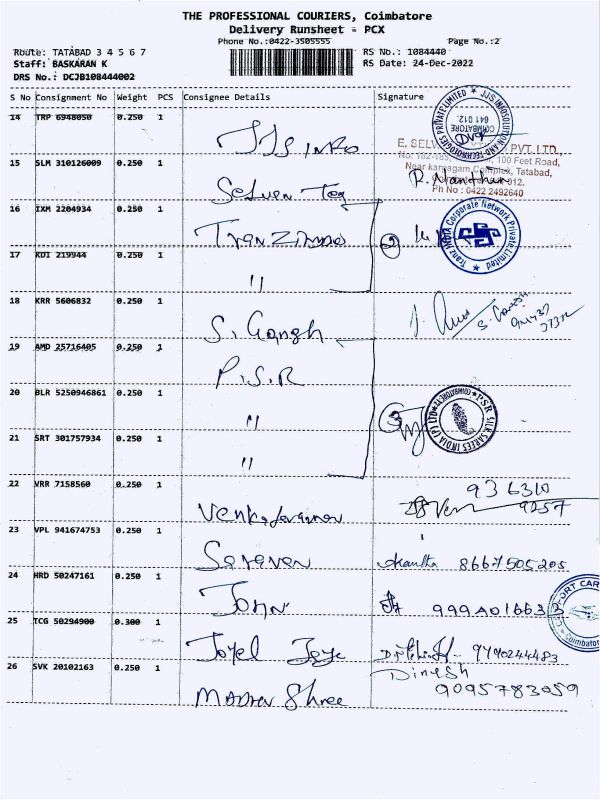 THE PROFESSIONAL COURIERS, Coimbatore
Delivery Runsheet - PCX
Phone No.:0422-3505555 Page No.:2
Route: TATABAD 3 4 5 6 7 RS No.: 1084440
Staff: BASKARAN K RS Date: 24-Dec-2022
DRS No.: DCJB108444002
S No Consignment No Weight PCS Consignee Details Signature
14 TRP 6948050 0.250 1
JJS INFO
JJS INFOSOLUTION AND TECHNOLOGIES PRIVATE LIMITED
COIMBATORE
641 012.
15 SLM 310126009 0.250 1
Selven Tex
100 Feet Road,
Near karpagam Complex, Tatabad,
Ph No : 0422 2492640
16 IXM 2204934 0.250 1
2
Tranz India Corporate Network Private Limited
17 KDI 219944 0.250 1
"
18 KRR 5606832 0.250 1
S. Gangh
19 AMD 25716405 0.250 1
P.S.R
20 BLR 5250946861 0.250 1
"
3
PSR SILK SAREES INDIA (P) LTD
COIMBATORE
21 SRT 301757934 0.250 1
"
22 VRR 7158560 0.250 1
936310
9257
23 VPL 941674753 0.250 1
Saraven
8667505205
24 HRD 50247161 0.250 1
John
25 TCG 50294900 0.300 1
Joyel
9790244483
Coimbatore
26 SVK 20102163 0.250 1
Madhav Shree
Dinesh
9095783059